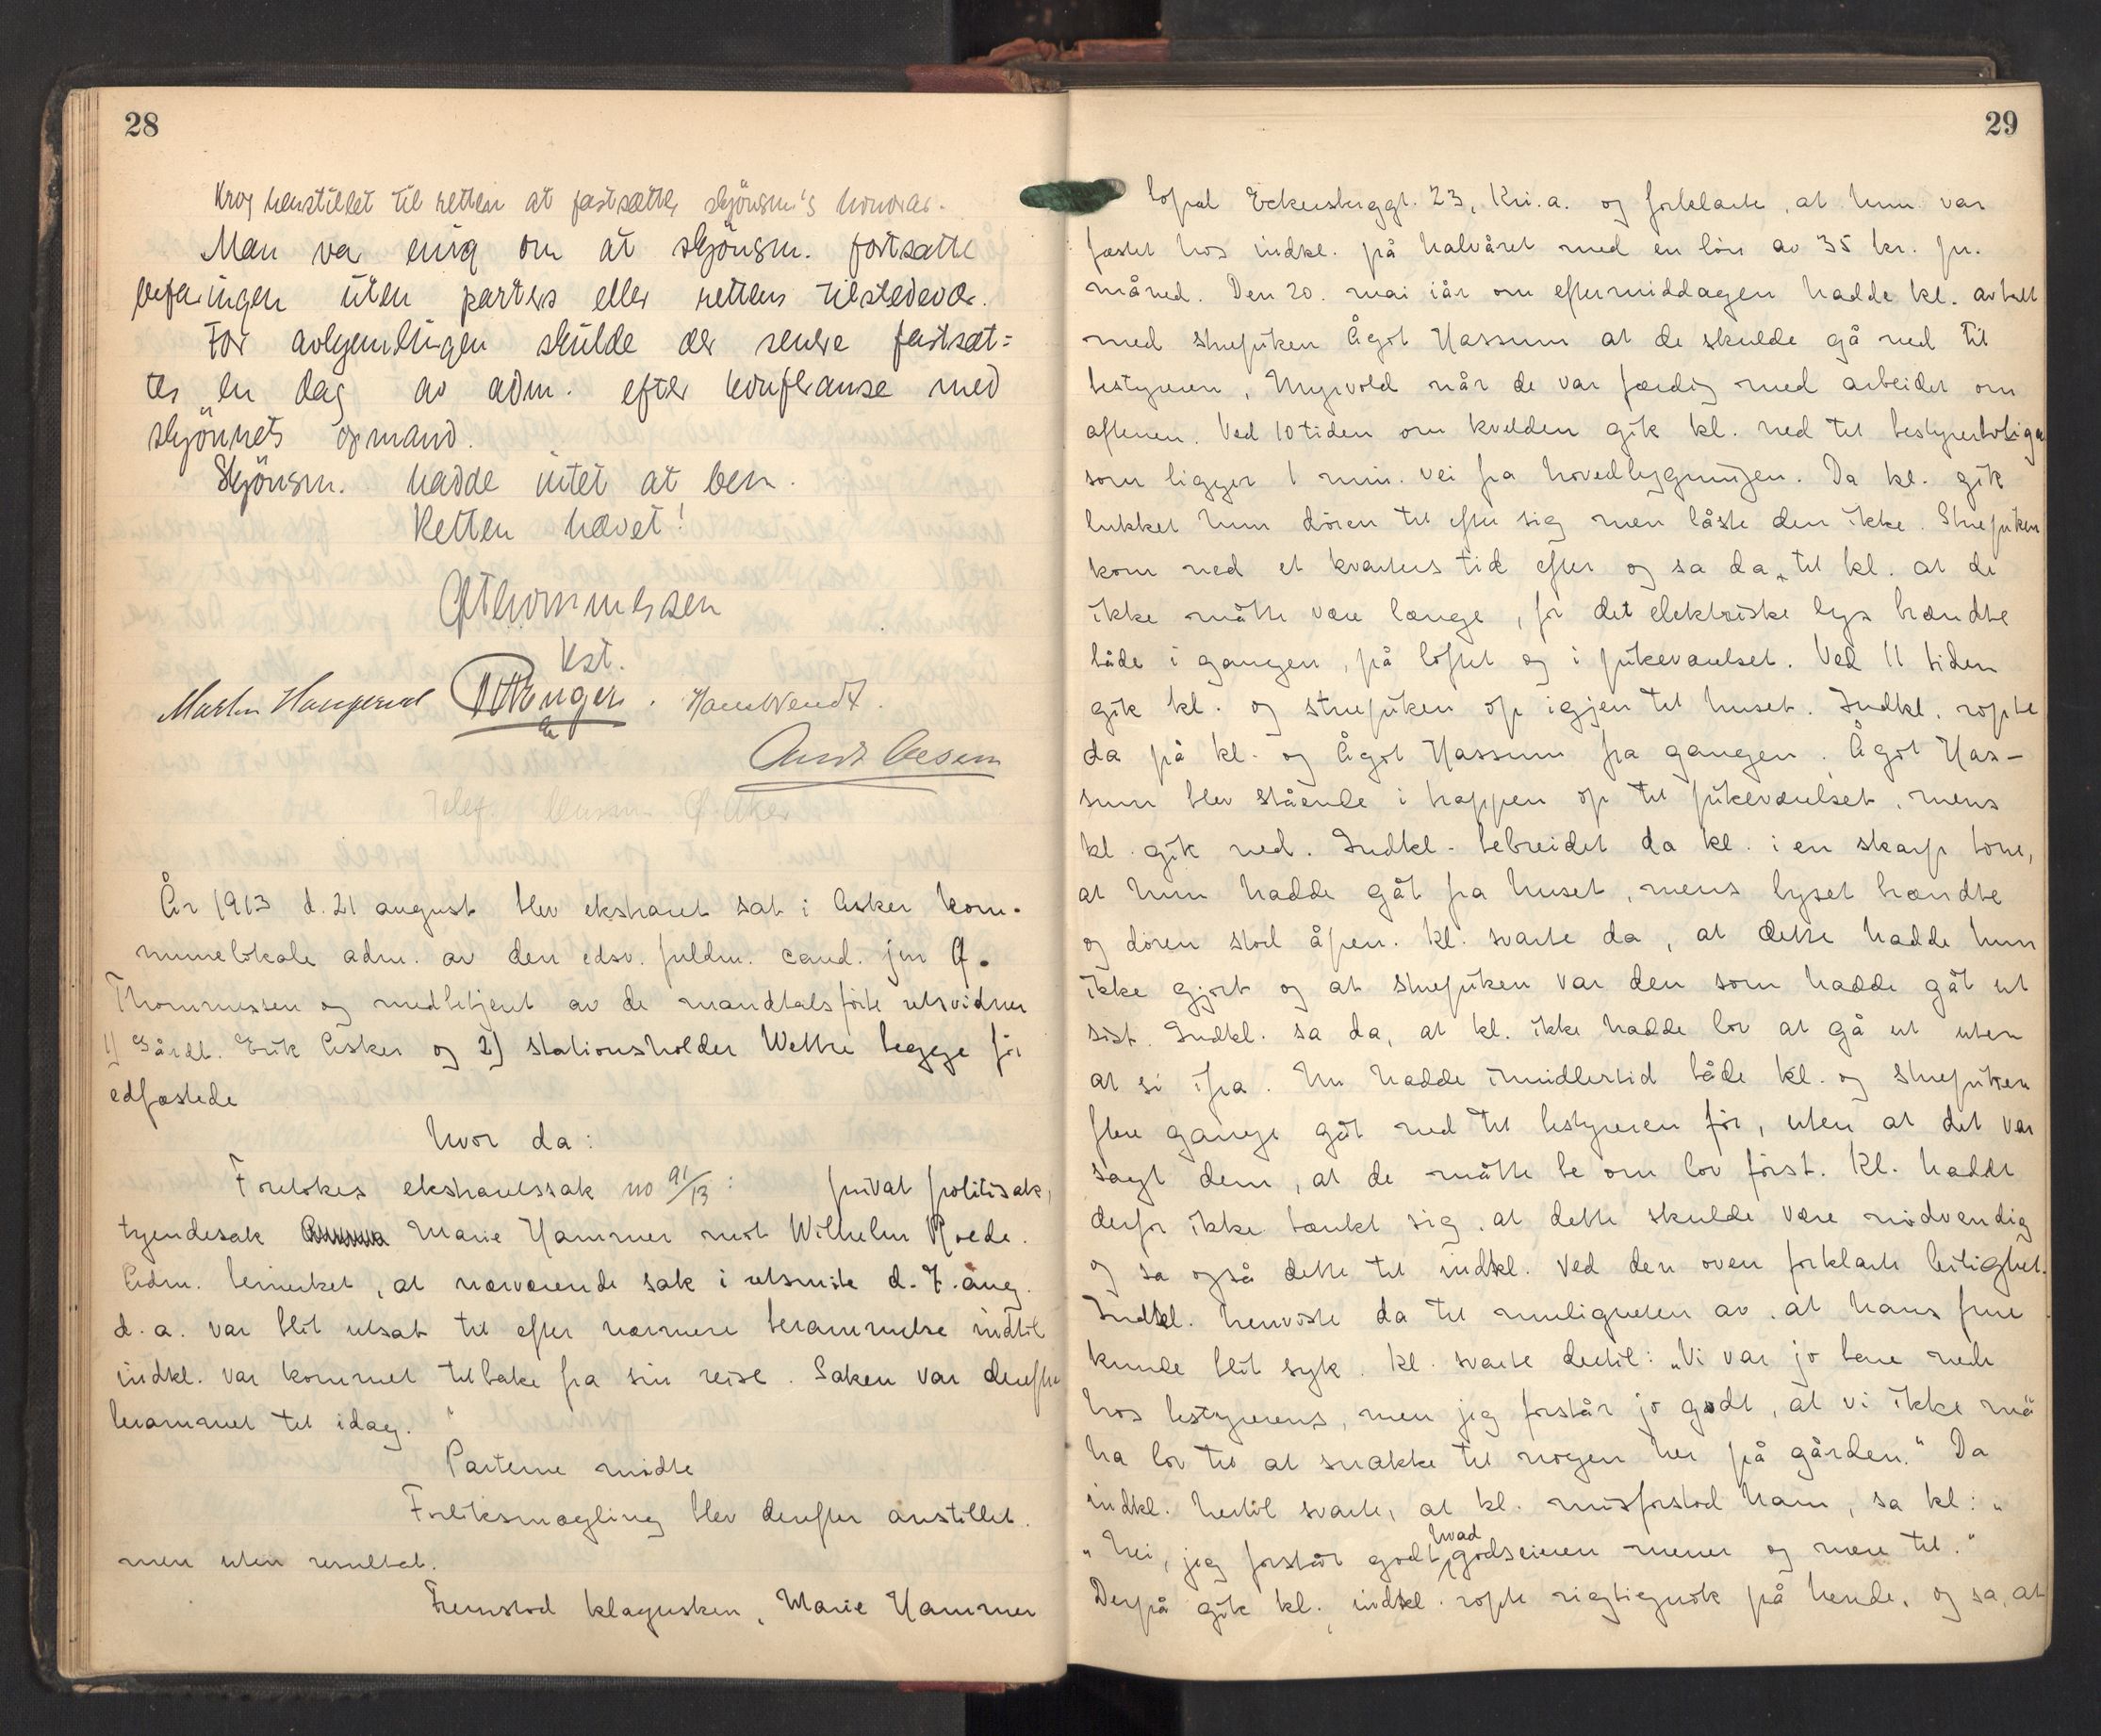 28
Krog henstillet til retten at fastsætte skjönsm's honorar.
Man var enig om at skjönsm. fortsatte
befaringen uten parters eller rettens tilstedevær.
For avhjemlingen skulde der senere fastsæt=
tes en dag av adm. efter konferanse med
skjönnets opmand.
Skjönsm. hadde intet at bem.
Retten hævet!
Thommessen
Kst.
Martin Haugerud Hans Wendt.
Telef.
År 1913 d. 21 august blev ekstraret sat i Asker kom-
munelokale adm. av den edsv. fuldm. cand. jur
Thommessen og medbetjent av de mandtalsförte retsvidner
1) Gårdb. Erik Asker og 2) stationsholder Wettre begge før
edfæstede
hvor da:
Foretokes ekstraretssak no 91/13: privat politisak,
tyendesak Marie Hammer mot Wilhelm Roede.
Adm. bemerket, at nærværende sak i retsmøte d. 7. aug.
d.a. var blit utsat til efter nærmere berammelse indtil
indkl. var kommet tilbake fra sin reise. Saken var derefter
berammet til idag.
Parterne mødte
Forliksmægling blev derefter anstillet.
men uten resultat.
Fremstod klagersken, Marie Hammer
29
Eckersbergsgt. 23, Kri.a. og forklarte, at hun var
fæstet hos indkl. på halvåret med en lön av 35 kr. pr.
måned. Den 20. mai iår om eftermiddagen hadde kl. avtalt
med stuepiken Ågot Hassum at de skulde gå ned til
bestyreren, Myrvold når de var færdig med arbeidet om
aftenen. Ved 10 tiden om kvelden gik kl. ned til bestyrerboligen
som ligger 1 min. vei fra hovedbygningen. Da kl. gik
lukket hun dören til efter sig men låste den ikke. Stuepiken
kom ned et kvarters tid efter og sa da til kl. at de
ikke måtte være længe, for det elektriske lys brændte
både i gangen, på loftet og i pikeværelset. Ved 11 tiden
gik kl. og stuepiken op igjen til huset. Indkl. ropte
da på kl. og Ågot Hassum fra gangen. Ågot Has-
sum blev stående i trappen op til pikeværelset, mens
kl. gik ned. Indkl. bebreidet da kl. i en skarp tone,
at hun hadde gåt fra huset, mens lyset brændte
og dören stod åpen. Kl. svarte da, at dette hadde hun
ikke gjort og at stuepiken var den som hadde gåt ut
sist. Indkl. sa da, at kl. ikke hadde lov at gå ut uten
at si ifra. Nu hadde imidlertid både kl. og stuepiken
flere gange gåt ned til bestyreren för, uten at det var
sagt dem, at de måtte be om lov först. Kl. hadde
derfor ikke tænkt sig, at dette skulde være nödvendig
og sa også dette til indkl. ved den oven forklarte leilighet.
Indkl. henviste da til muligheten av, at hans frue
kunde blit syk. Kl. svarte dertil: "Vi var jo bare nede
hos bestyrerens, men jeg forstår jo godt, at vi ikke må
ha lov til at snakke til nogen her på gården." Da
indkl. hertil svarte, at kl. misforstod ham, sa kl.:
"Nei, jeg forstår godt hvad godseieren mener og mere til."
Derpå gik kl., indkl. ropte rigtignok på hende, og sa, at